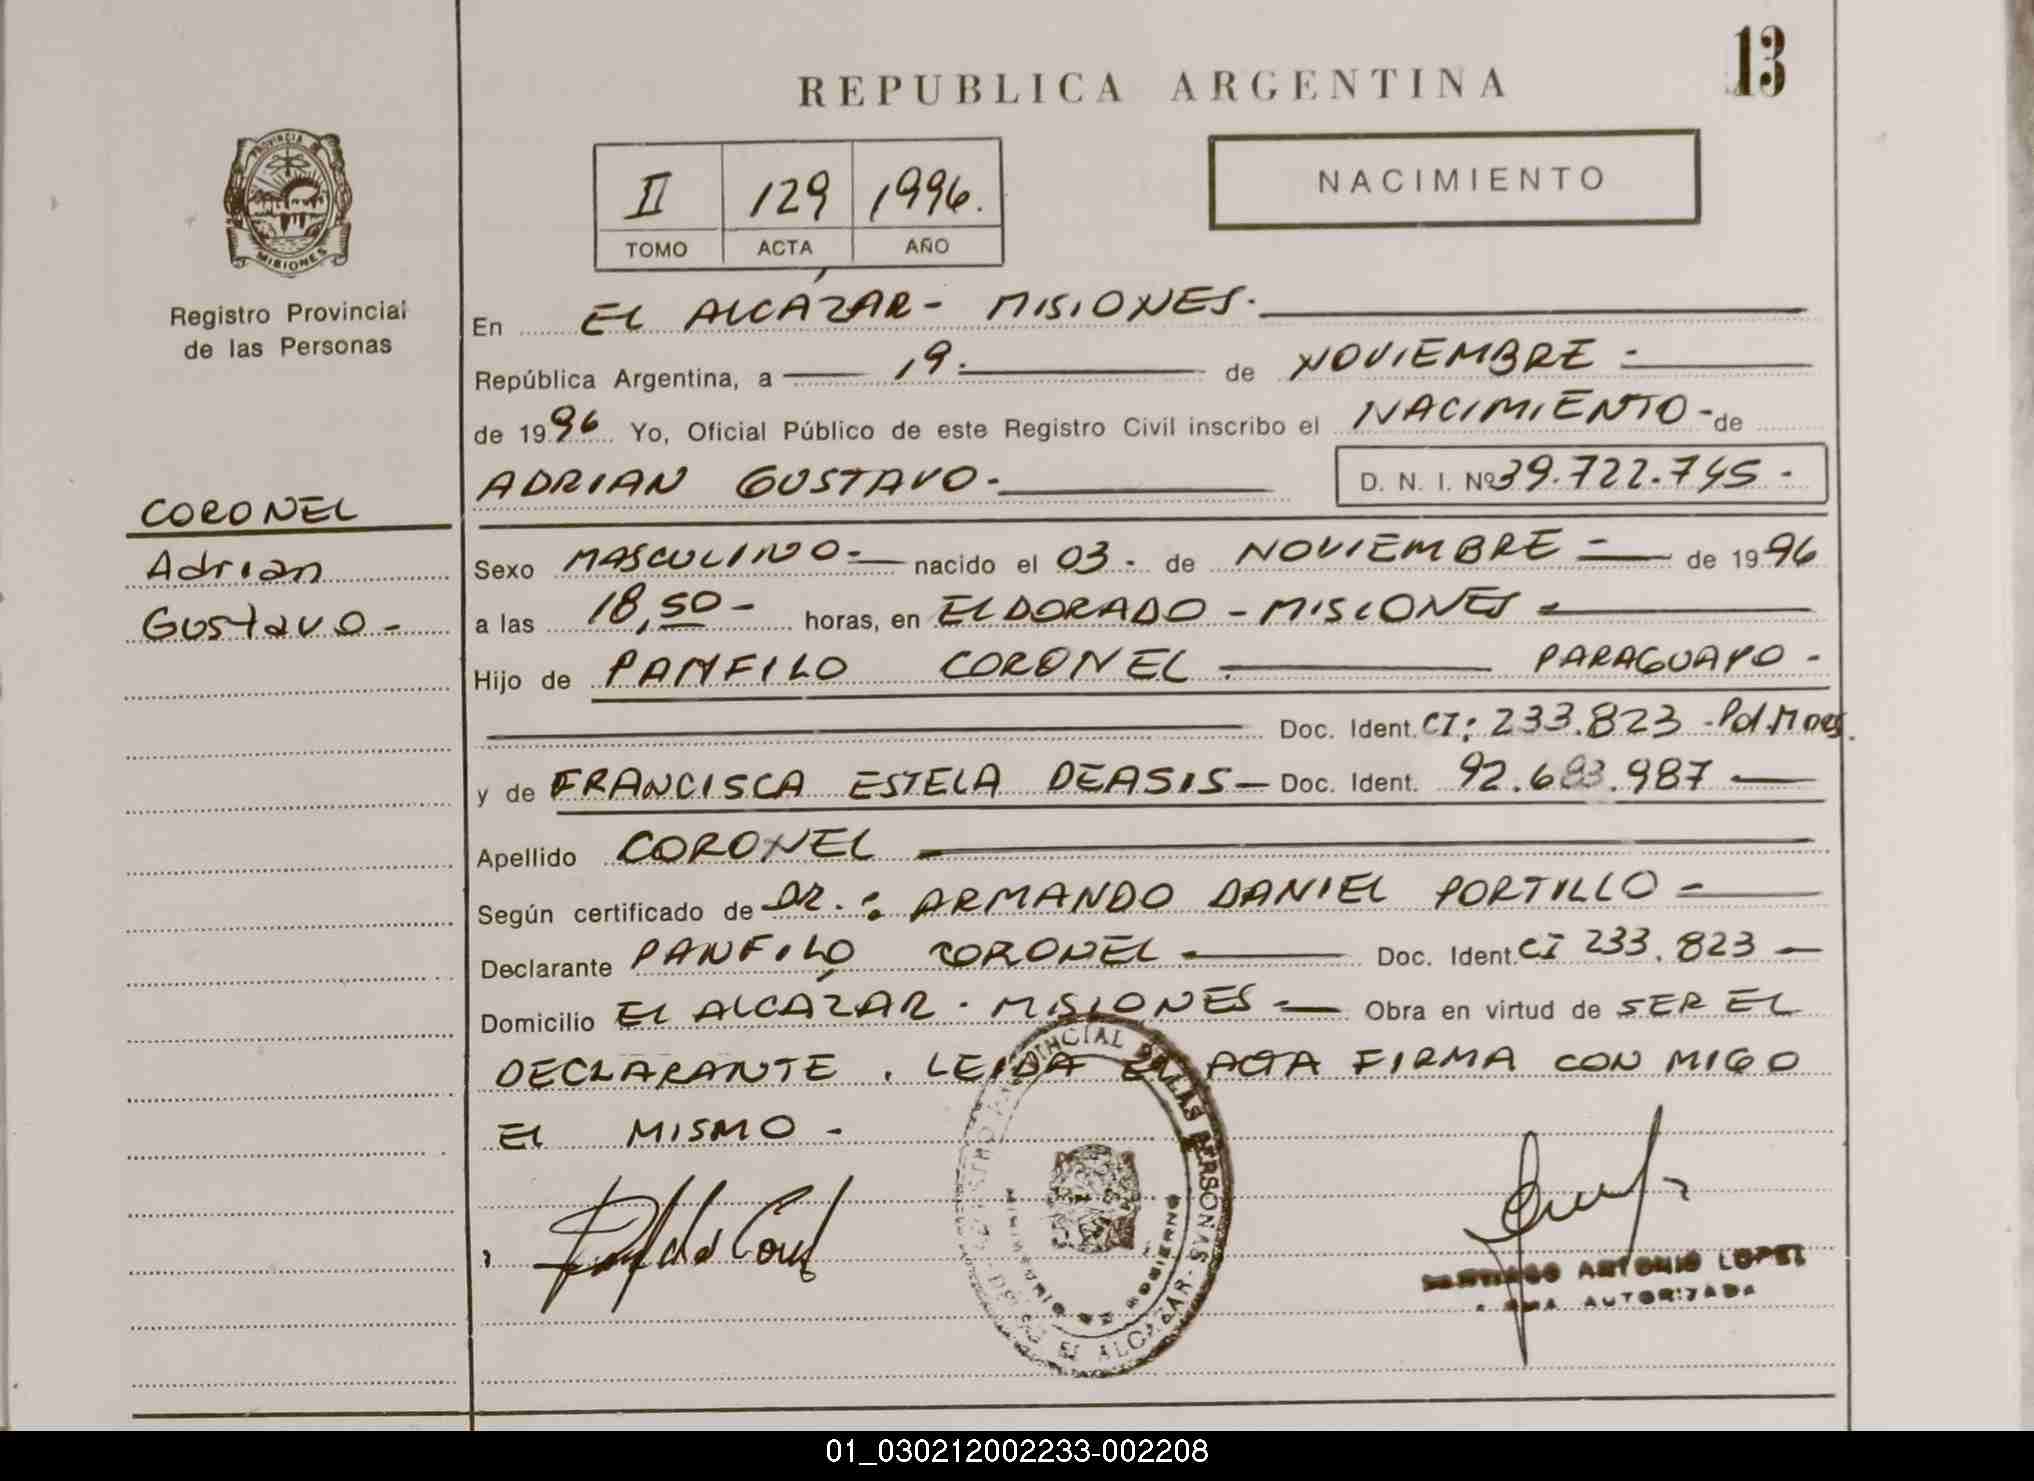 13
REPUBLICA ARGENTINA
PROVINCIA DE
MISIONES
Registro Provincial
de las Personas
II 129 1996.
TOMO ACTA AÑO
NACIMIENTO
En EL ALCÁZAR - MISIONES.
República Argentina, a 19. de NOVIEMBRE -
de 1996 Yo, Oficial Público de este Registro Civil inscribo el NACIMIENTO - de
ADRIAN GUSTAVO. D. N. I. Nº 39.722.745 -
CORONEL
Adrian
Gustavo -
Sexo MASCULINO - nacido el 03 - de NOVIEMBRE - de 1996
a las 18,50 - horas, en ELDORADO - MISIONES -
Hijo de PANFILO CORONEL. PARAGUAYO -
Doc. Ident. CI: 233.823 - Pol. Mnes.
y de FRANCISCA ESTELA DEASIS - Doc. Ident. 92.683.987
Apellido CORONEL
Según certificado de DR. : ARMANDO DANIEL PORTILLO -
Declarante PANFILO CORONEL Doc. Ident. CI 233.823 -
Domicilio EL ALCÁZAR - MISIONES - Obra en virtud de SER EL
DECLARANTE . LEIDA EL ACTA FIRMA CON MIGO
EL MISMO -
PROVINCIAL DE LAS PERSONAS
MINISTERIO DE GOBIERNO
EL ALCAZAR
SANTIAGO ANTONIO LOPEZ
FIRMA AUTORIZADA
01_030212002233-002208